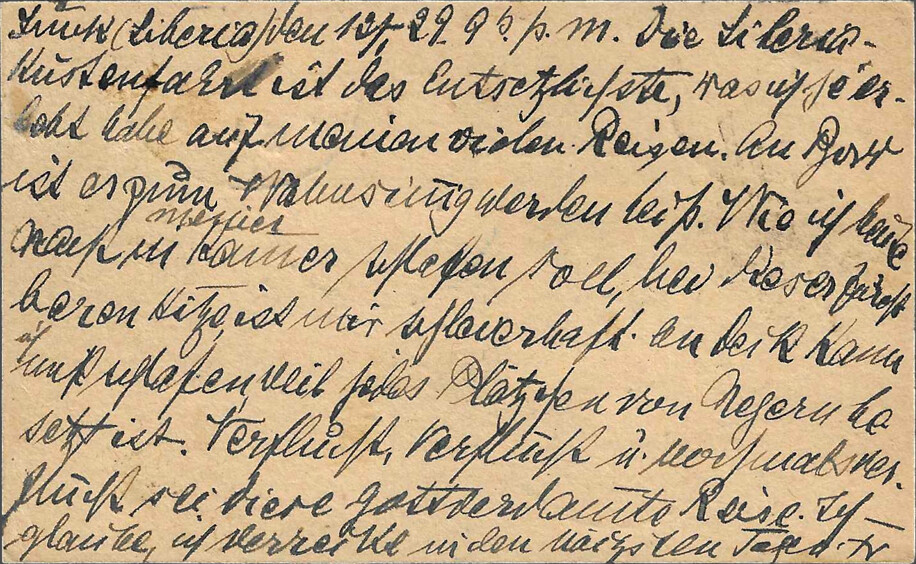 (Liberia) den 12/ 29. 9 p. m. Die Liberia-
Küstenfahrt ist das Entsetzlichste, was ich je er-
lebt habe auf meinen vielen Reisen. An Bord
ist es zum Wahnsinnigwerden heiß. Wie ich heute
nacht in meiner
Kammer schlafen soll, bei dieser furcht
baren Hitze ist mir schleierhaft. An Deck kann
ich
nicht schlafen, weil jedes Plätzchen von Negern be
setzt ist. Verflucht, verflucht u. nochmals ver-
flucht sei diese gottverdammte Reise. Ich
glaube, ich verrecke in den nächsten Tagen.